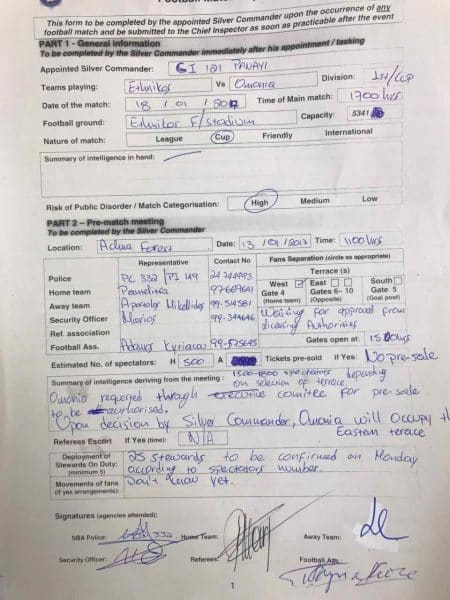 This form to be completed by the appointed Silver Commander upon the occurrence of any
football match and be submitted to the Chief Inspector as soon as practicable after the event
PART 1 - General information
To be completed by the Silver Commander immediately after his appointment / tasking
Appointed Silver Commander: CI 121 PANAYI
Teams playing: Ethnikos Vs Omonia Division: 1st/cup
Date of the match: 18 / 01 / 2017 Time of Main match: 1700hrs
Football ground: Ethnikos F/stadium Capacity: 5341
Nature of match: League Cup Friendly International
Summary of intelligence in hand:
Risk of Public Disorder / Match Categorisation: High Medium Low
PART 2 – Pre-match meeting
To be completed by the Silver Commander
Location: Achna Forest Date: 13 / 01 / 2017 Time: 1100hrs
Representative Contact No Fans Separation (circle as appropriate)
Police PC 332 / PI 149 24744493 Terrace (s)
Home team 97669641 West Gate 4 (Home team) East Gates 6- 10 (Opposite) South Gate 5 (Goal post)
Away team Apostolos Mikellides 99-514581 Waiting for approval from
Security Officer Marios 99-344646 Authorities
Ref. association
Football Ass. Kyriacou 99-575645 Gates opened at: 1500hrs
Estimated No. of spectators: H 500 A Tickets pre-sold If Yes: No pre-sale
Summary of intelligence deriving from the meeting: 1500-1800 spectators depending
on selection of terrace.
Omonia requested through executive comitee for pre-sale
to be authorised.
Upon decision by Silver Commander, Omonia will occupy the
Eastern terrace
Referees Escort If Yes (time): N/A
Deployment of Stewards On Duty: (minimum 5) 25 stewards to be confirmed on Monday
according to spectators number.
Movements of fans (if yes arrangements): Don't know yet.
Signatures (agencies attended):
SBA Police: 332 Home Team: Away Team:
Security Officer: Referees: Football Ass.
1